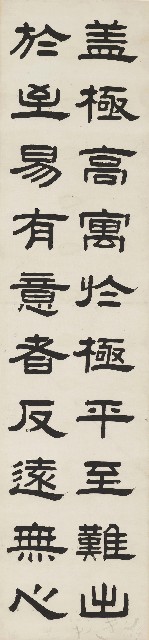 盖極高寓扵極平至難出
扵至易有意者反遠無心